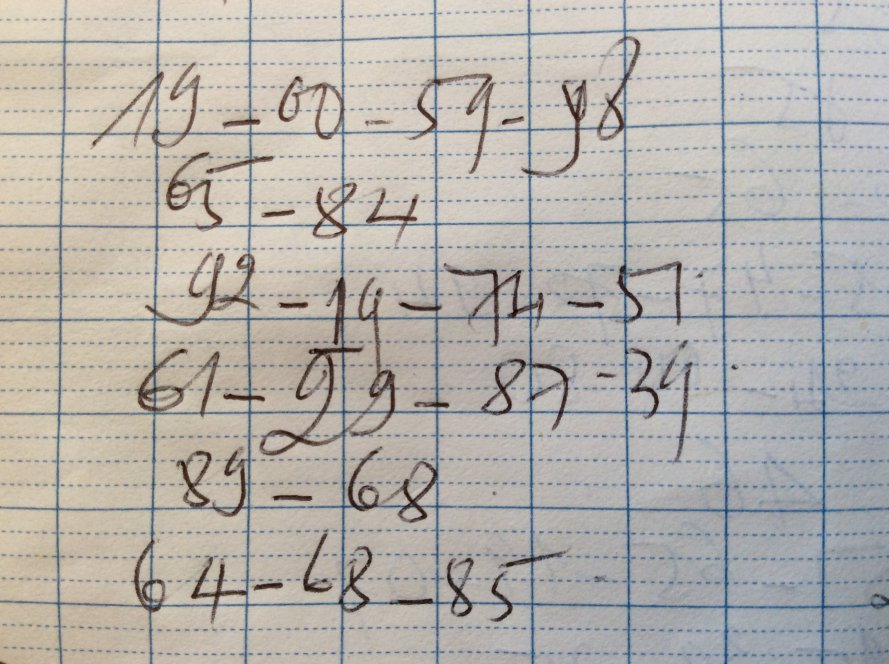 19 - 60 - 59 - 98
65 - 84
92 - 19 - 74 - 51
61 - 99 - 87 - 39
89 - 68
64 - 68 - 85